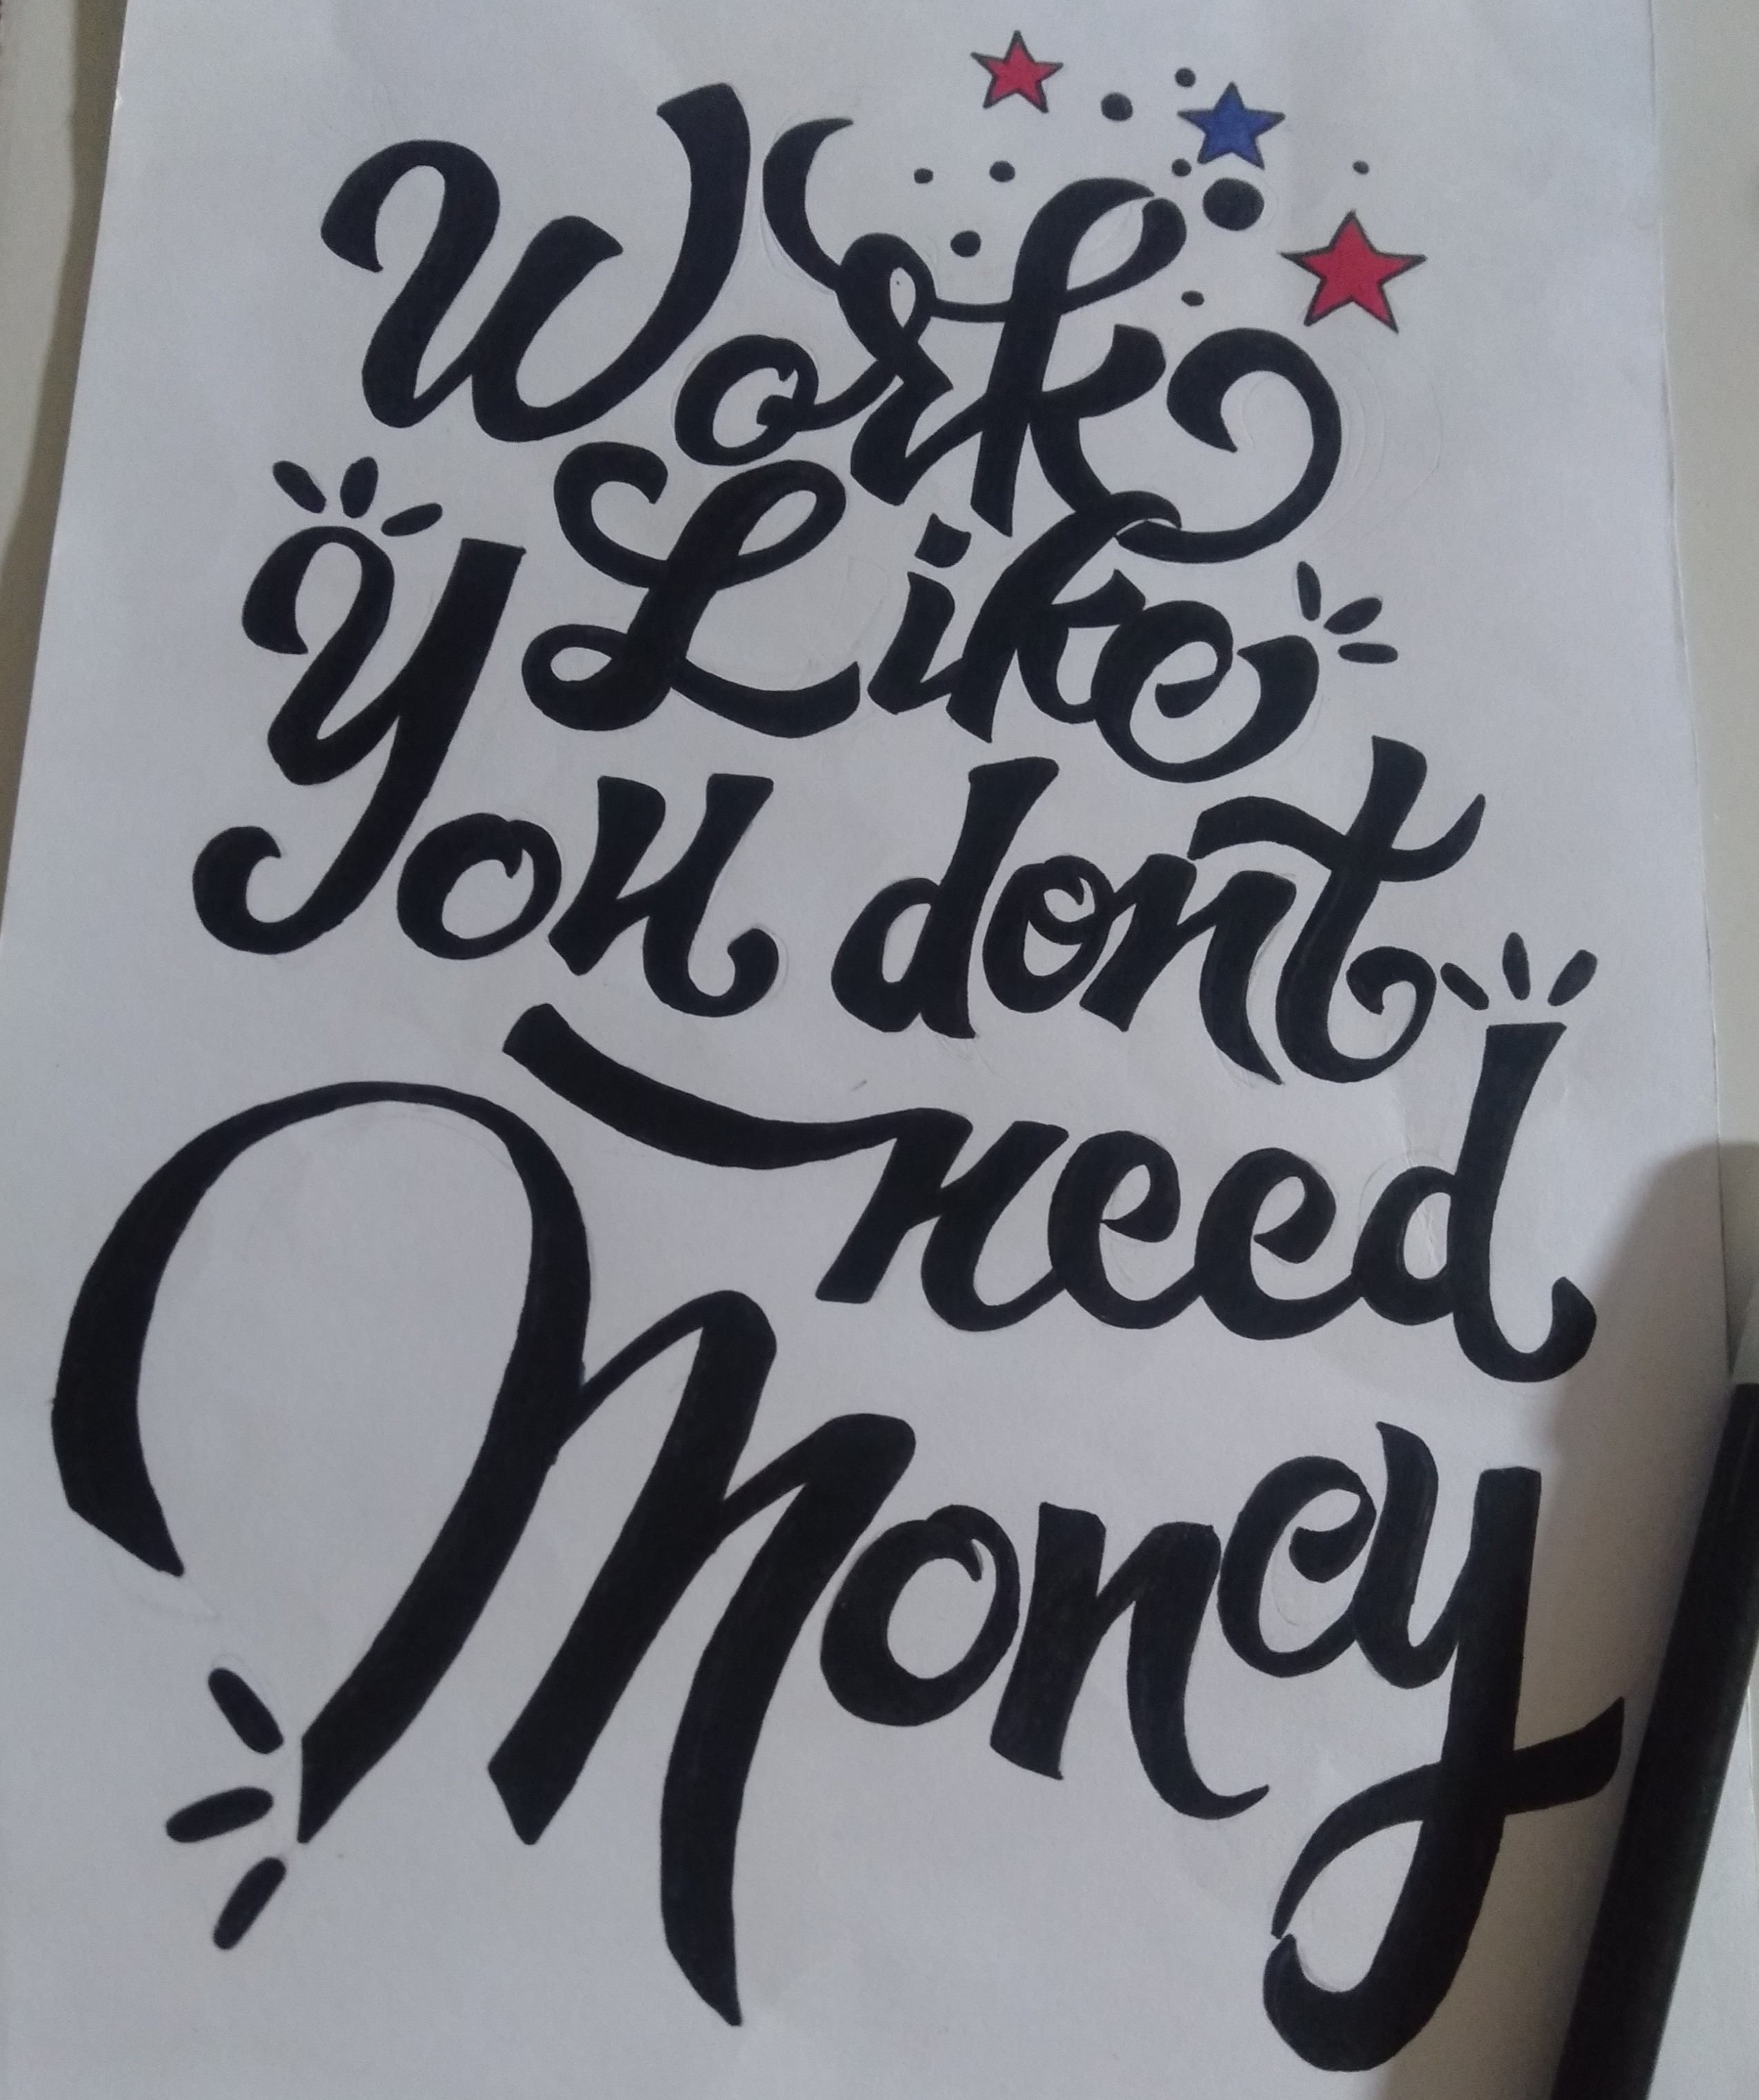 Work
Like
You dont
need
Money